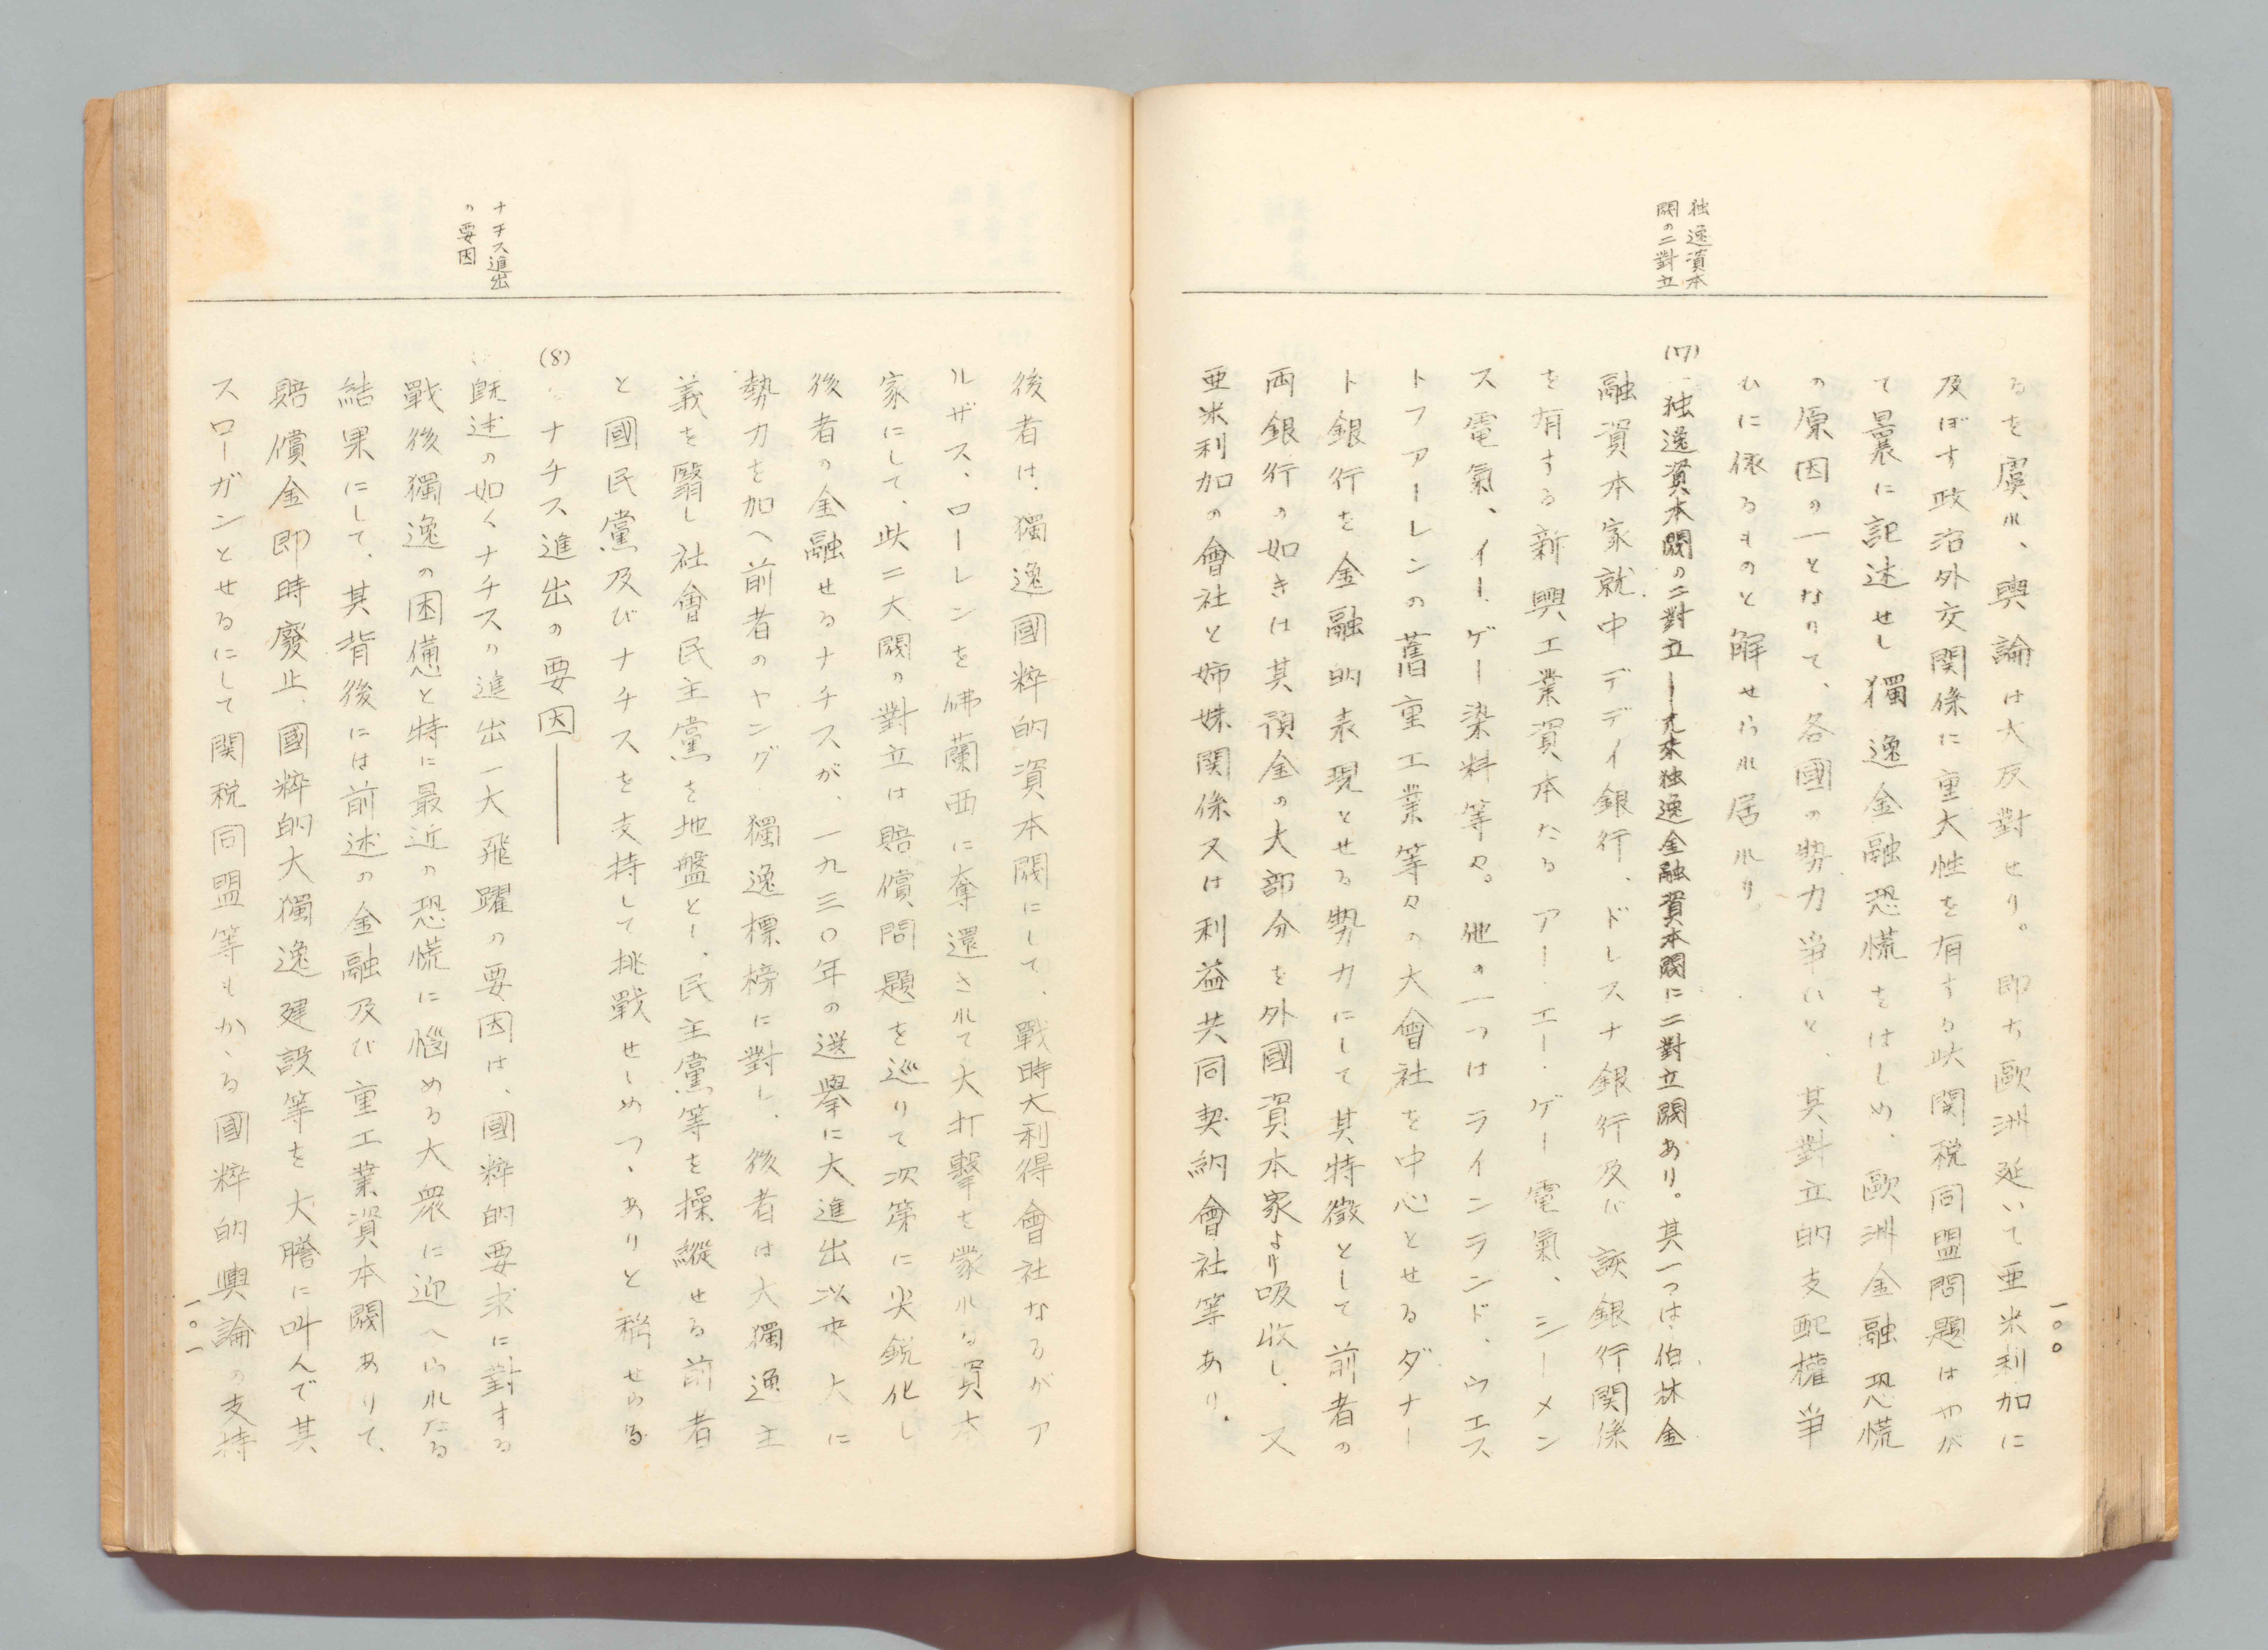 独逸資本
閥の二對立
るを虞れ、輿論は大反對せり。即ち歐洲延いて亜米利加に
及ぼす政治外交関係に重大性を有する此関税同盟問題はやが
て曩に記述せし獨逸金融恐慌をはしめ、歐洲金融恐慌
の原因の一となりて、各國の勢力爭ひと、其對立的支配權爭
ひに依るものと解せられ居れり。
(7)独逸資本閥の二對立ー元来独逸金融資本閥に二對立閥あり。其一つは、伯林金
融資本家就中デデイ銀行、ドレスナ銀行及び該銀行関係
を有する新興工業資本たるアー.エー.ゲー電氣、シーメン
ス電氣、イー.ゲー染料等々。他の一つはラインランド、ウエス
トファーレンの舊重工業等々の大會社を中心とせるダナー
ト銀行を金融的表現とせる勢力にして其特徴として前者の
両銀行の如きは其預金の大部分を外國資本家より吸收し、又
亜米利加の會社と姉妹関係又は利益共同契約會社等あり。
一〇〇
ナチス進出
の要因
後者は、獨逸國粹的資本閥にして、戰時大利得會社なるがア
ルザス、ローレンを佛蘭西に奪還されて大打擊を蒙れる資本
家にして、此二大閥の對立は賠償問題を巡りて次第に尖鋭化し
後者の金融せるナチスが、一九三〇年の選擧に大進出以来大に
勢力を加へ前者のヤング獨逸標榜に對し、後者は大獨逸主
義を翳し社會民主黨を地盤とし、民主黨等を操縱せる前者
と國民黨及びナチスを支持して挑戰せしめつゝありと稱せらる
(8)ナチス進出の要因——
既述の如くナチスの進出一大飛躍の要因は、國粹的要求に對する
戰後獨逸の困憊と特に最近の恐慌に惱める大衆に迎へられたる
結果にして、其背後には前述の金融及び重工業資本閥ありて、
賠償金即時廢止、國粹的大獨逸建設等を大膽に叫んで其
スローガンとせるにして関税同盟等もかゝる國粹的輿論の支持
一〇一